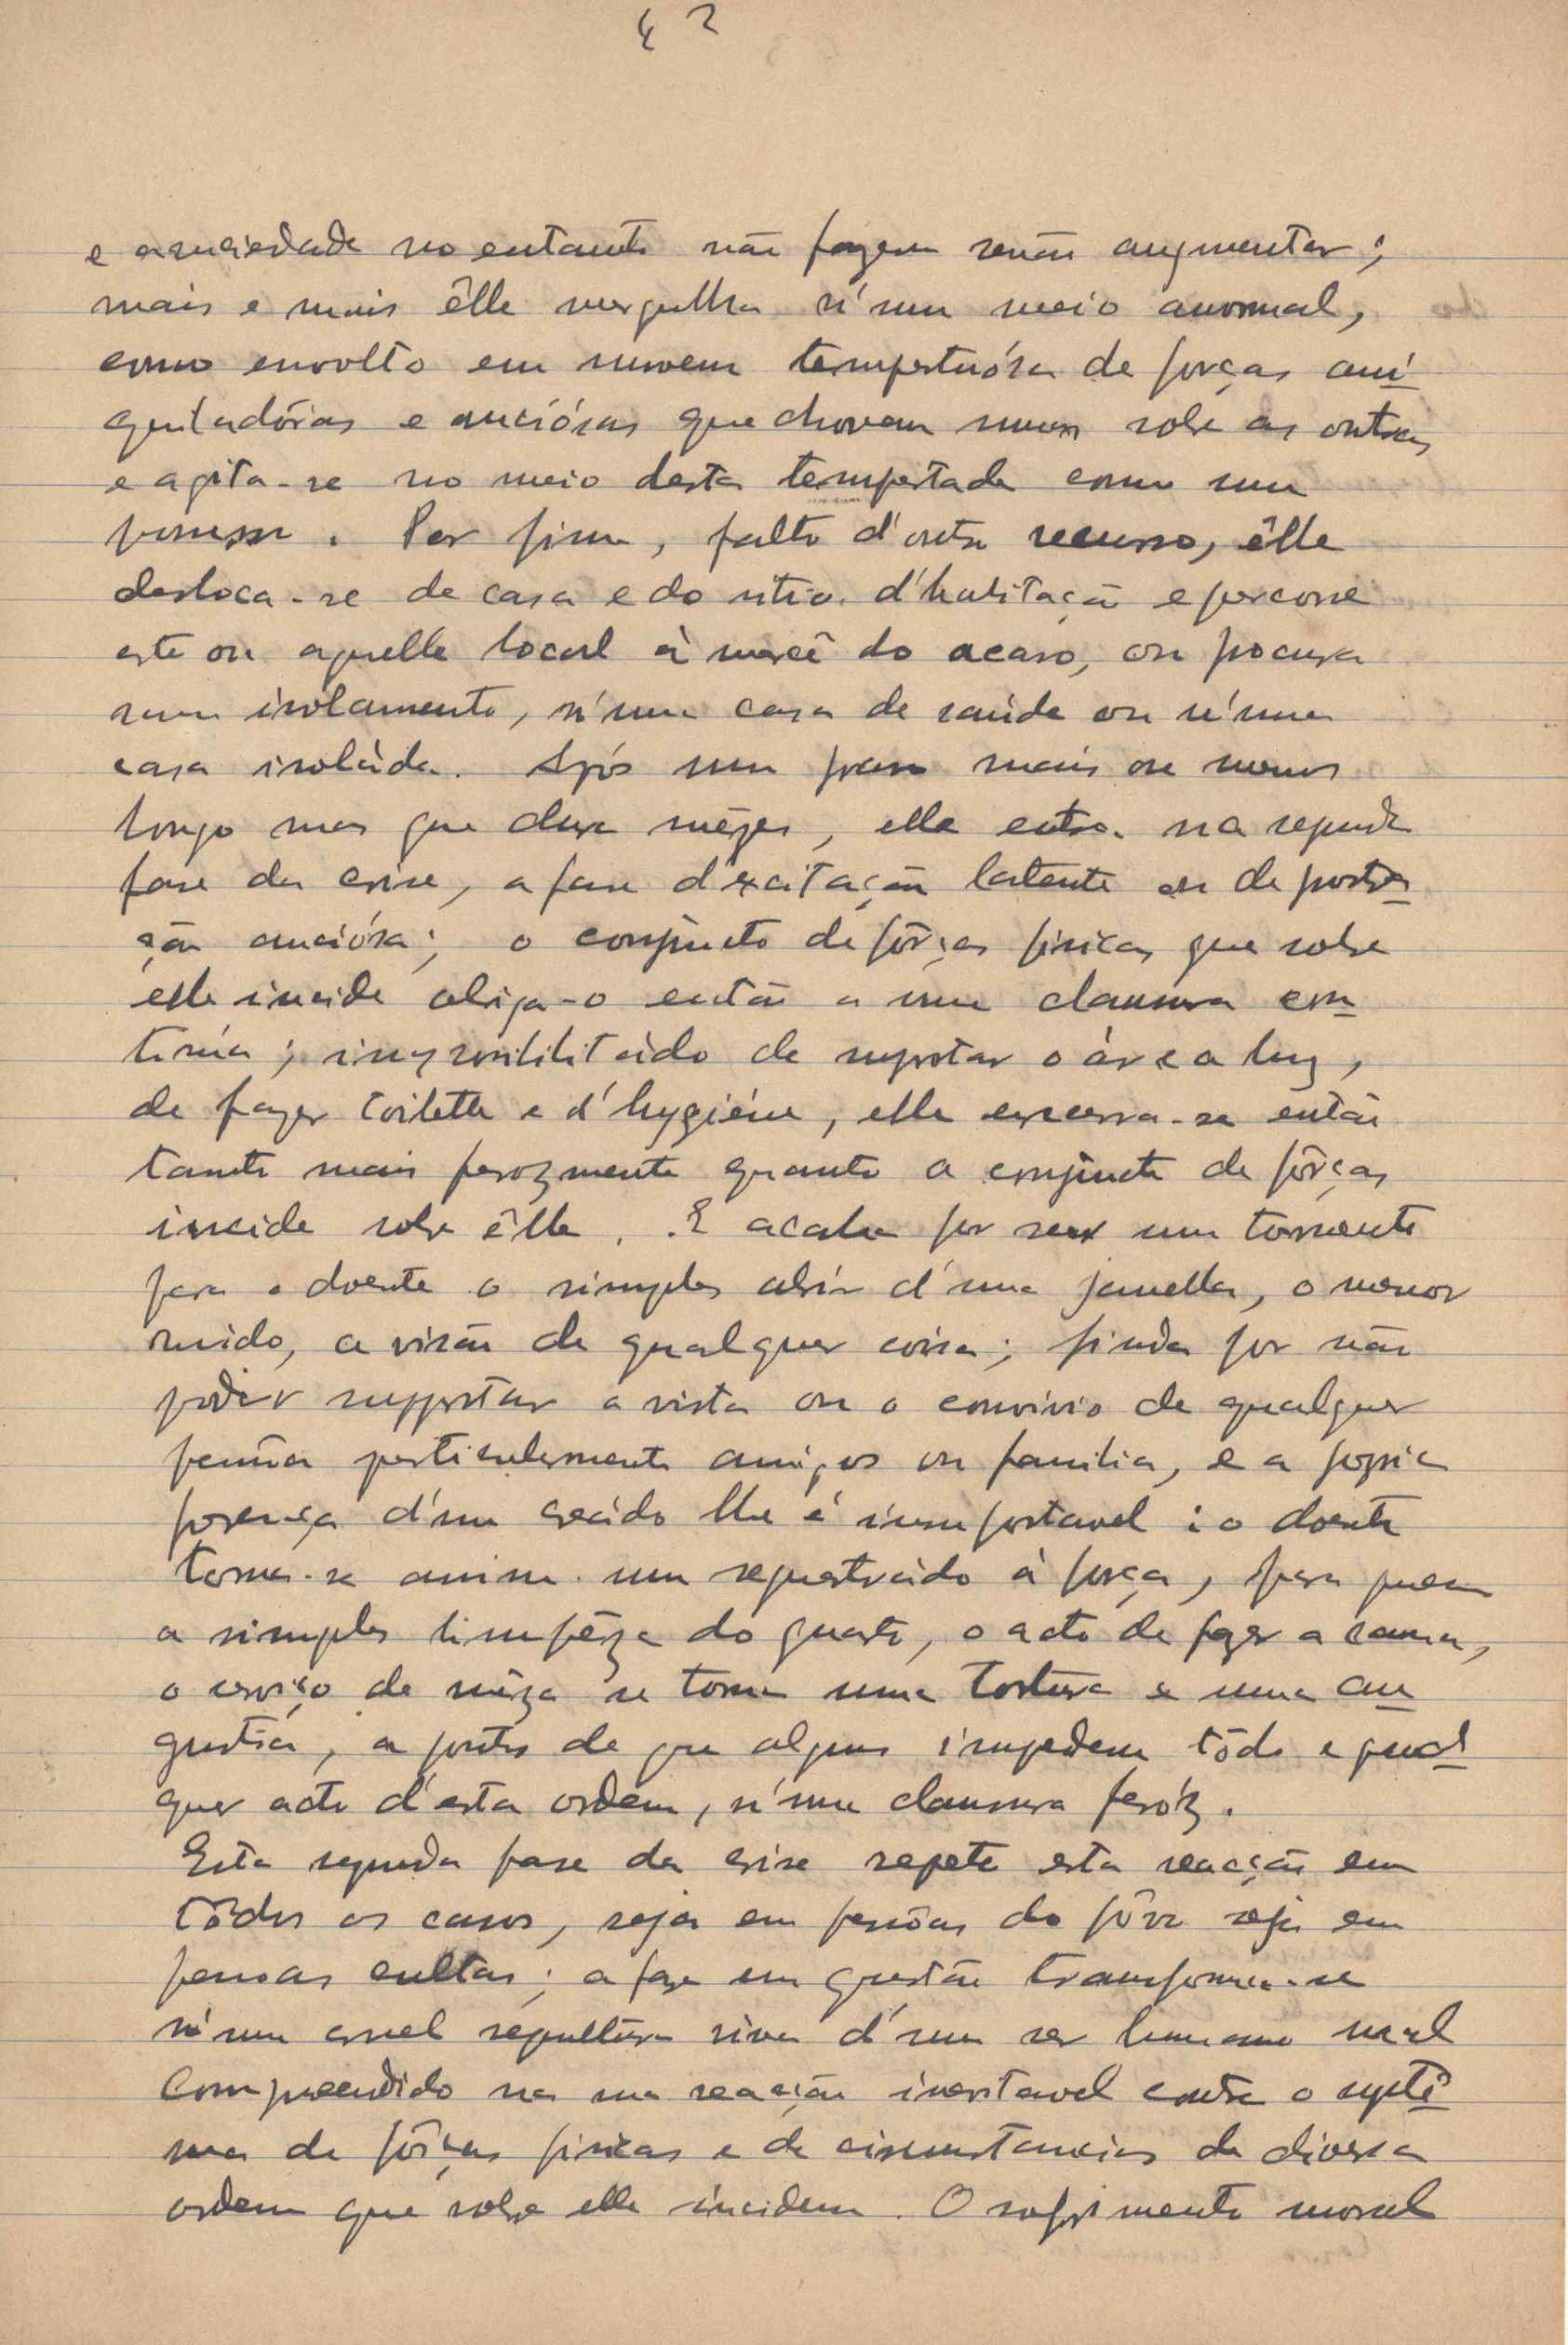 42
e anciedade no entanto não fazem senão augmentar;
mais e mais êlle mergulha n'um meio anormal,
como envolto em nuvem tempestuósa de forças ani
quiladóras e anciósas que chovem umas sobre as outras
e agita-se no meio desta tempestade como um
possesso. Por fim, falto d'outro recurso, êlle
desloca-se de casa e do sitio d'habitação e percorre
este ou aquelle local à mercê do acaso, ou procura
num isolamento, n'uma casa de saúde ou n'uma
casa isoláda. Após um prazo mais ou menos
longo mas que dura mêzes, elle entra na segunda
fase da crise, a fase d'excitação latente ou de prostra
ção anciósa; o conjuncto de fôrças fisicas que sobre
elle incide obriga-o então a uma clausura con
tinúa; impossibilitádo de suportar o ár e a luz,
de fazer toilette e d'hygiéne, elle encerra-se então
tanto mais ferozmente quanto o conjuncto de fôrças
incide sobre êlle. E acaba por ser um tormento
para o doente o simples abrir d'uma janella, o menor
ruido, a visão de qualquer coisa; finda por não
poder supportar a vista ou o convivio de qualquer
pessôa particularmente amigos ou familia, e a propria
presença d'um creádo lhe é insuportavel; o doente
torna-se assim um sequestrádo à força, para quem
a simples limpêza do quarto, o acto de fazer a cama,
o serviço de mêza se torna uma tortura e uma an
gustia, a pontos de que alguns impedem tôdo e qual
quer acto d'esta ordem, n'uma clausura feróz.
Esta segunda fase da crise repete esta reacção em
tôdos os casos, seja em pessôas do pôvo seja em
pessoas cultas; a fase em questão transforma-se
n'uma cruel sepultura viva d'um ser humano mal
comprehendido na sua reacção inevitavel contra o systê
ma de fôrças fisicas e de circunstancias de diversa
ordem que sobre elle incidem. O sofrimento moral